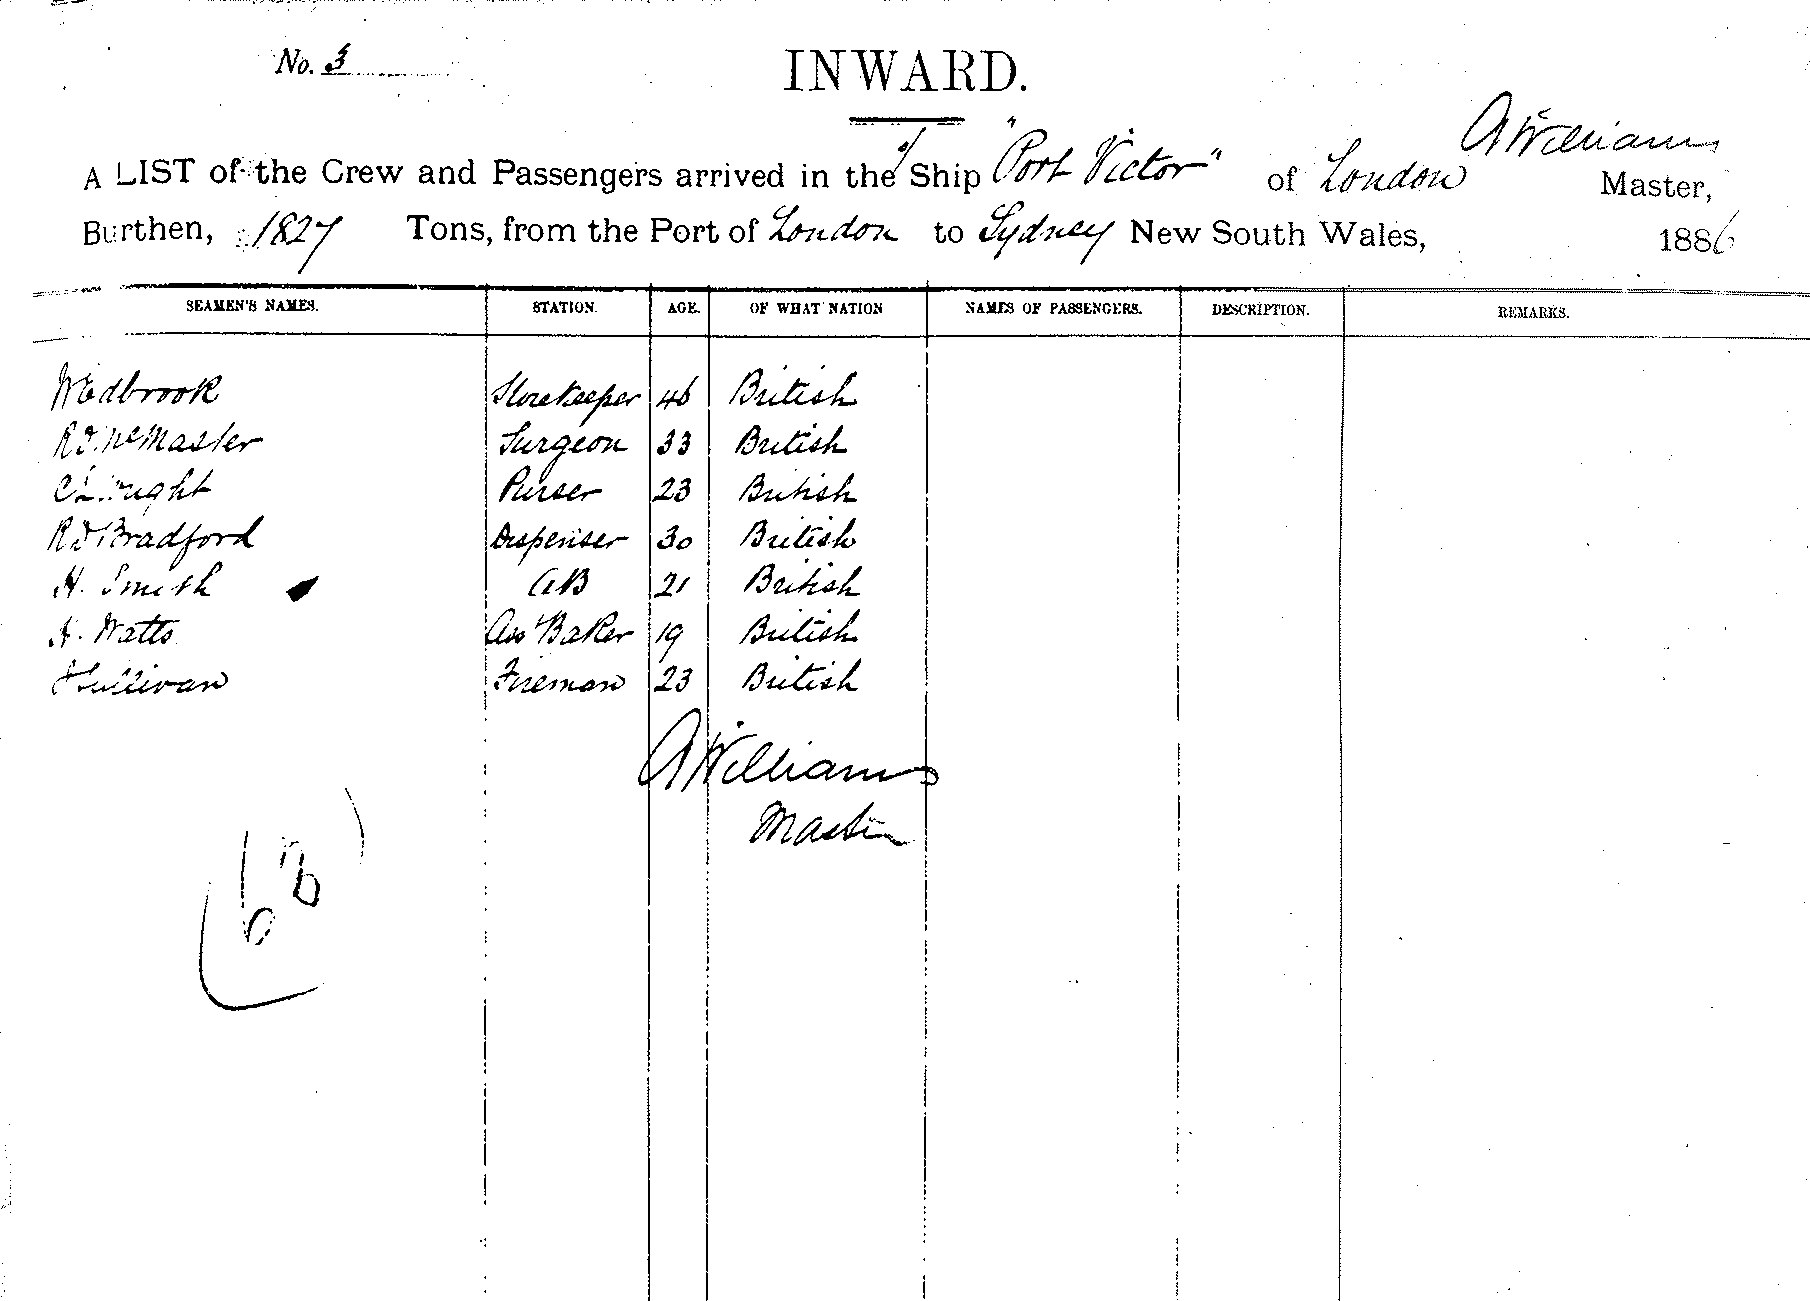 No. 3
INWARD.
A Williams
A LIST of the Crew and Passengers arrived in the s/ Ship "Port Victor" of London Master,
Burthen, 1827 Tons, from the Port of London to Sydney New South Wales, 1886
SEAMEN'S NAMES. STATION. AGE. OF WHAT NATION NAMES OF PASSENGERS. DESCRIPTION. REMARKS.
W Edbrook Storekeeper 46 British
R D McMaster Surgeon 33 British
C L Purser 23 British
R D Bradford Dispenser 30 British
H. Smith AB 21 British
H. Watts Ass Baker 19 British
J Sullivan Fireman 23 British
A Williams
Master